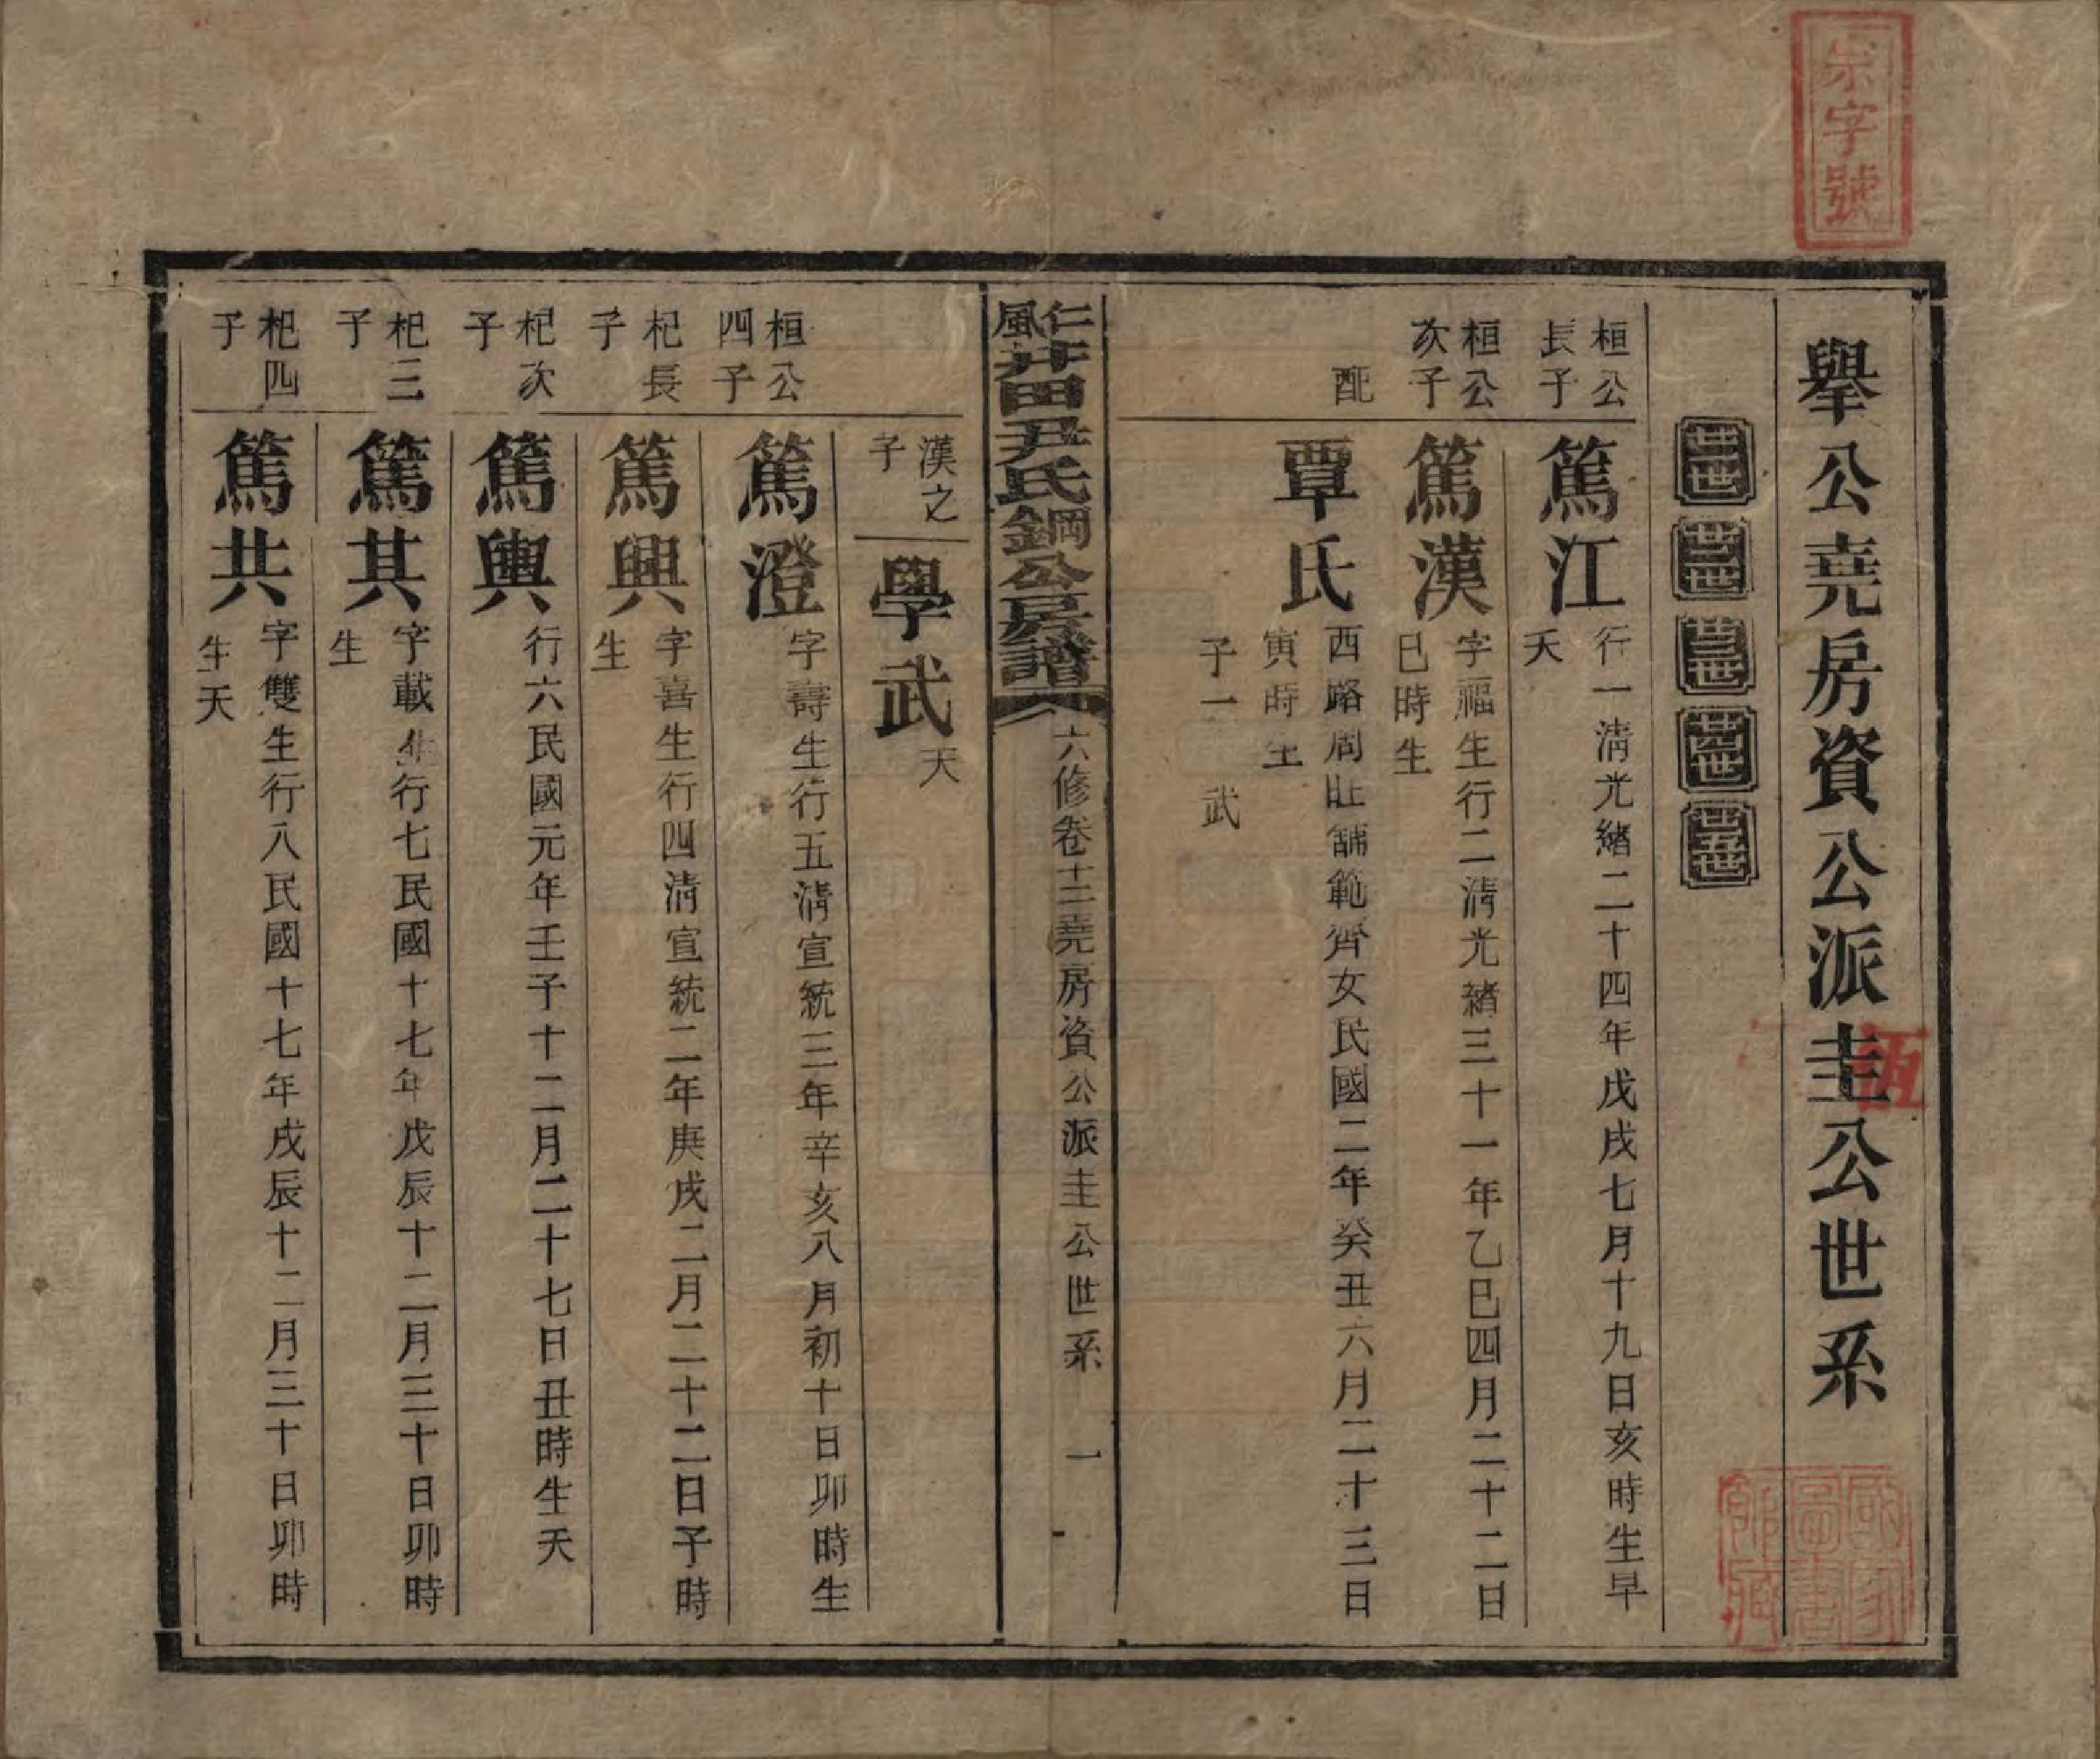 宗字號
舉公堯房資公派圭公世系
伍
廿一世 廿二世 廿三世 廿四世 廿五世
桓公長子
篤江
行一清光緒二十四年戊戌七月十九日亥時生早
夭
桓公次子
篤漢
字福生行二清光緒三十一年乙巳四月二十二日
巳時生
配
覃氏
西路周旺舖範齊女民國二年癸丑六月二十三日
寅時生
子一 武
仁風井田尹氏鋼公房譜
六修卷十二堯房資公派圭公世系 一
漢之子
學武
夭
桓公四子
篤澄
字壽生行五清宣統三年辛亥八月初十日卯時生
杞長子
篤興
字喜生行四清宣統二年庚戌二月二十二日子時
生
杞次子
篤輿
行六民國元年壬子十二月二十七日丑時生夭
杞三子
篤其
字載生行七民國十七年戊辰十二月三十日卯時
生
杞四子
篤共
字雙生行八民國十七年戊辰十二月三十日卯時
生夭
國家圖書館藏